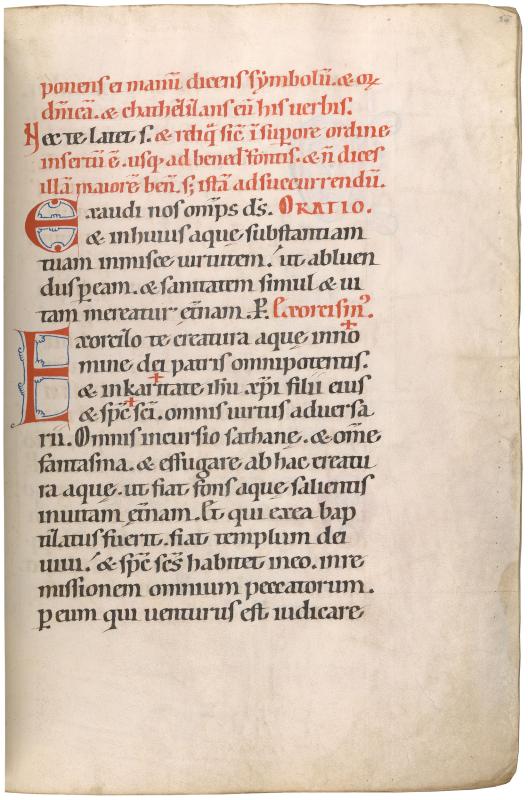 ponens ei manũ dicens sỹmbolũ. & or̃
dñicã. & chathẽlil ans eũ his uerbis:
Nec te latet s̃. & reliq̃ sič ĩ supore ordine
insertũ ẽ. usq; ad bened̃ fontis. & ñ dices
illã maiorẽ beñ. s; istã ad succurrendũ.
Exaudi nos om̃ps d̃s. ORATIO.
& in huius aque substantiam
tuam inmisce uirtutem. ut abluen
dus ꝑ eam. & sanitatem simul & ui
tam mereatur et̃nam. P̃. Exorcism̃⁹.
Exorcizo te creatura aque in no
mine dei patris omnipotentis.
& in karitate ih̃u xp̃i filii eius
& sp̃c sc̃i. omnis uirtus aduersa
rii. Omnis incursio sathane. & om̃e
fantasma. & effugare ab hac creatu
ra aque. ut fiat fons aque salientis
in uitam et̃nam. Et qui ex ea bap
tizatus fuerit. fiat templum dei
uiui. & sp̃c sc̃s habitet in eo. in re
missionem omnium peccatorum.
ꝑ eum qui uenturus est iudicare